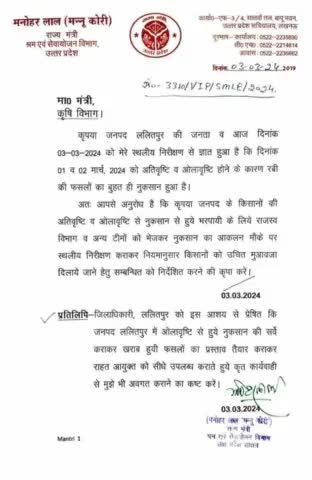 मनोहर लाल (मन्नू कोरी)
राज्य मंत्री
श्रम एवं सेवायोजन विभाग,
उत्तर प्रदेश
कार्या०-एफ-3/4, सातवाँ तल, बापू भवन,
उत्तर प्रदेश सचिवालय, लखनऊ
दूरभाष- कार्यालय: 0522-2235890
सी०एच०: 0522-2214614
आवास: 0522-2235296
दिनांक, 03-03-24, 2019
3310/VIP/SMLE/2024.
मा0 मंत्री,
कृषि विभाग।
कृपया जनपद ललितपुर की जनता व आज दिनांक
03-03-2024 को मेरे स्थलीय निरीक्षण से ज्ञात हुआ है कि दिनांक
01 व 02 मार्च, 2024 को अतिवृष्टि व ओलावृष्टि होने के कारण रबी
की फसलों का बुहत ही नुकसान हुआ है।
अतः आपसे अनुरोध है कि कृपया जनपद के किसानों की
अतिवृष्टि व ओलावृष्टि से नुकसान से हुये भरपायी के लिये राजस्व
विभाग व अन्य टीमों को भेजकर नुकसान का आकलन मौके पर
स्थलीय निरीक्षण कराकर नियमानुसार किसानों को उचित मुआवजा
दिलाये जाने हेतु सम्बन्धित को निर्देशित करने की कृपा करें।
03.03.2024
प्रतिलिपि–जिलाधिकारी, ललितपुर को इस आशय से प्रेषित कि
जनपद ललितपुर में ओलावृष्टि से हुये नुकसान की सर्वे
कराकर खराब हुयी फसलों का प्रस्ताव तैयार कराकर
राहत आयुक्त को सीधे उपलब्ध कराते हुये कृत कार्यवाही
से मुझे भी अवगत कराने का कष्ट करें।
03.03.2024
(मनोहर लाल "मन्नू कोरी")
राज्य मंत्री
श्रम एवं सेवायोजन विभाग
उत्तर प्रदेश शासन
Mantri 1